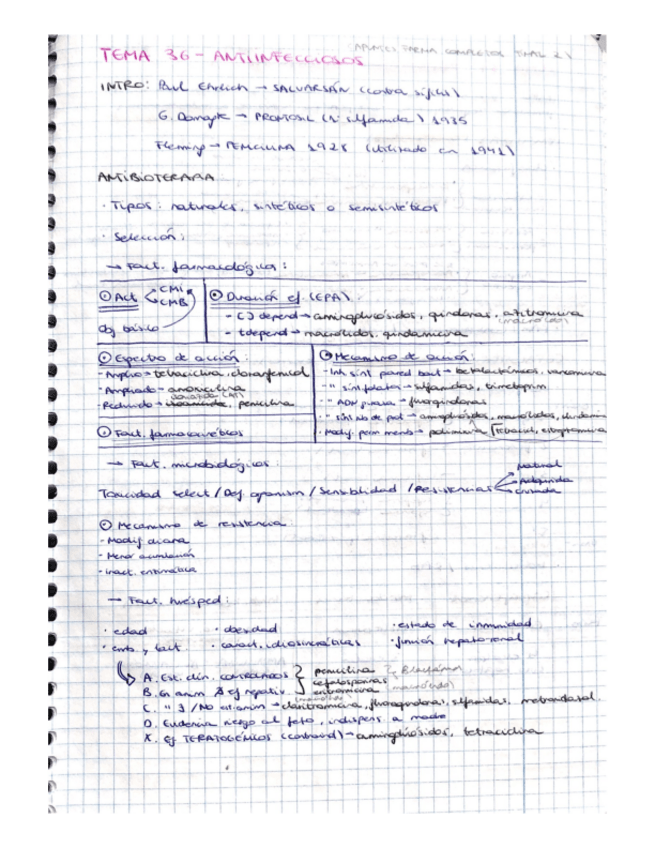 (APUNTES FARMA COMPLETOS TEMAS 2)
TEMA 36 - ANTIINFECCIOSOS
INTRO: Paul Ehrlich → SALVARSÁN (contra sífilis)
G. Domagk → PRONTOSIL (1ª sulfamida) 1935
Fleming → PENICILINA 1928 (utilizado en 1941)
ANTIBIOTERAPIA
· Tipos: naturales, sintéticos o semisintéticos
· Selección:
→ Fact. farmacológicos:
Act CMI CMB
Obj básico
Duración ef. (EPA).
- [ ] depend → aminoglucósidos, quinolonas, azitromicina
(macrólidos)
- tdepend → macrólidos, clindamicina
Espectro de acción:
- Amplio → tetraciclina, cloranfenicol
- Ampliado → amoxicilina
- Reducido → penicilina
Fact. farmacocinéticos
Mecanismo de acción:
- Inh sínt pared bact → betalactámicos, vancomicina
- " sínt folatos → sulfamidas, trimetoprim
- " ADN girasa → fluorquinolonas
- " síntesis de prot → aminoglucósidos, macrólidos, clindamic
- Modif. perm memb → polimixina
→ Fact. microbiológicos:
Toxicidad select / Def. organism / Sensibilidad / Resistencias
Natural
Adquirida
Cruzada
Mecanismo de resistencia
- Modif diana
- Menor acumulación
- Inact. enzimática
→ Fact. huésped:
· edad · obesidad · estado de inmunidad
· emb y lact. · caract. idiosincráticas · función hepato-renal
A. Est. clín. controlados
B. En anim ef negativ
penicilina
cefalosporinas
eritromicina
(macrólidos)
C. " / No est. anim → claritromicina, fluorquinolonas, sulfamidas, metronidazol.
D. Evidencia riesgo al feto, indispens a madre
X. Ef TERATOGÉNICOS → aminoglucósidos, tetraciclina